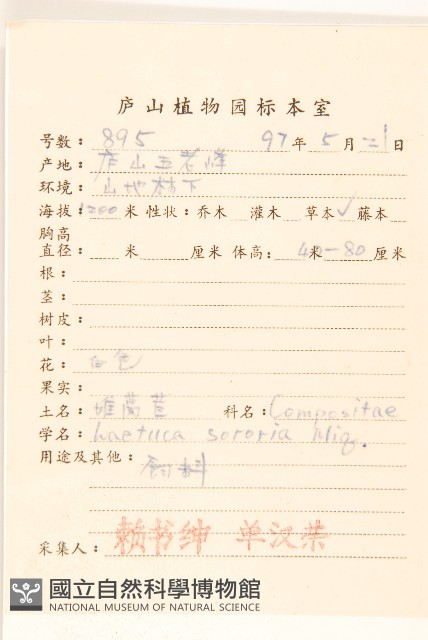 庐山植物园标本室
号数: 895 97年 5月 二1日
产地: 庐山五老峰
环境: 山地林下
海拔: 1200 米 性状: 乔木 灌木 草本✓ 藤本
胸高
直径: 米 厘米 体高: 米 40-80 厘米
根:
茎:
树皮:
叶:
花: 白色
果实:
土名: 堆莴苣 科名: Compositae
学名: Lactuca sororia Miq.
用途及其他: 饲料
采集人: 赖书绅 单汉荣
國立自然科學博物館
NATIONAL MUSEUM OF NATURAL SCIENCE